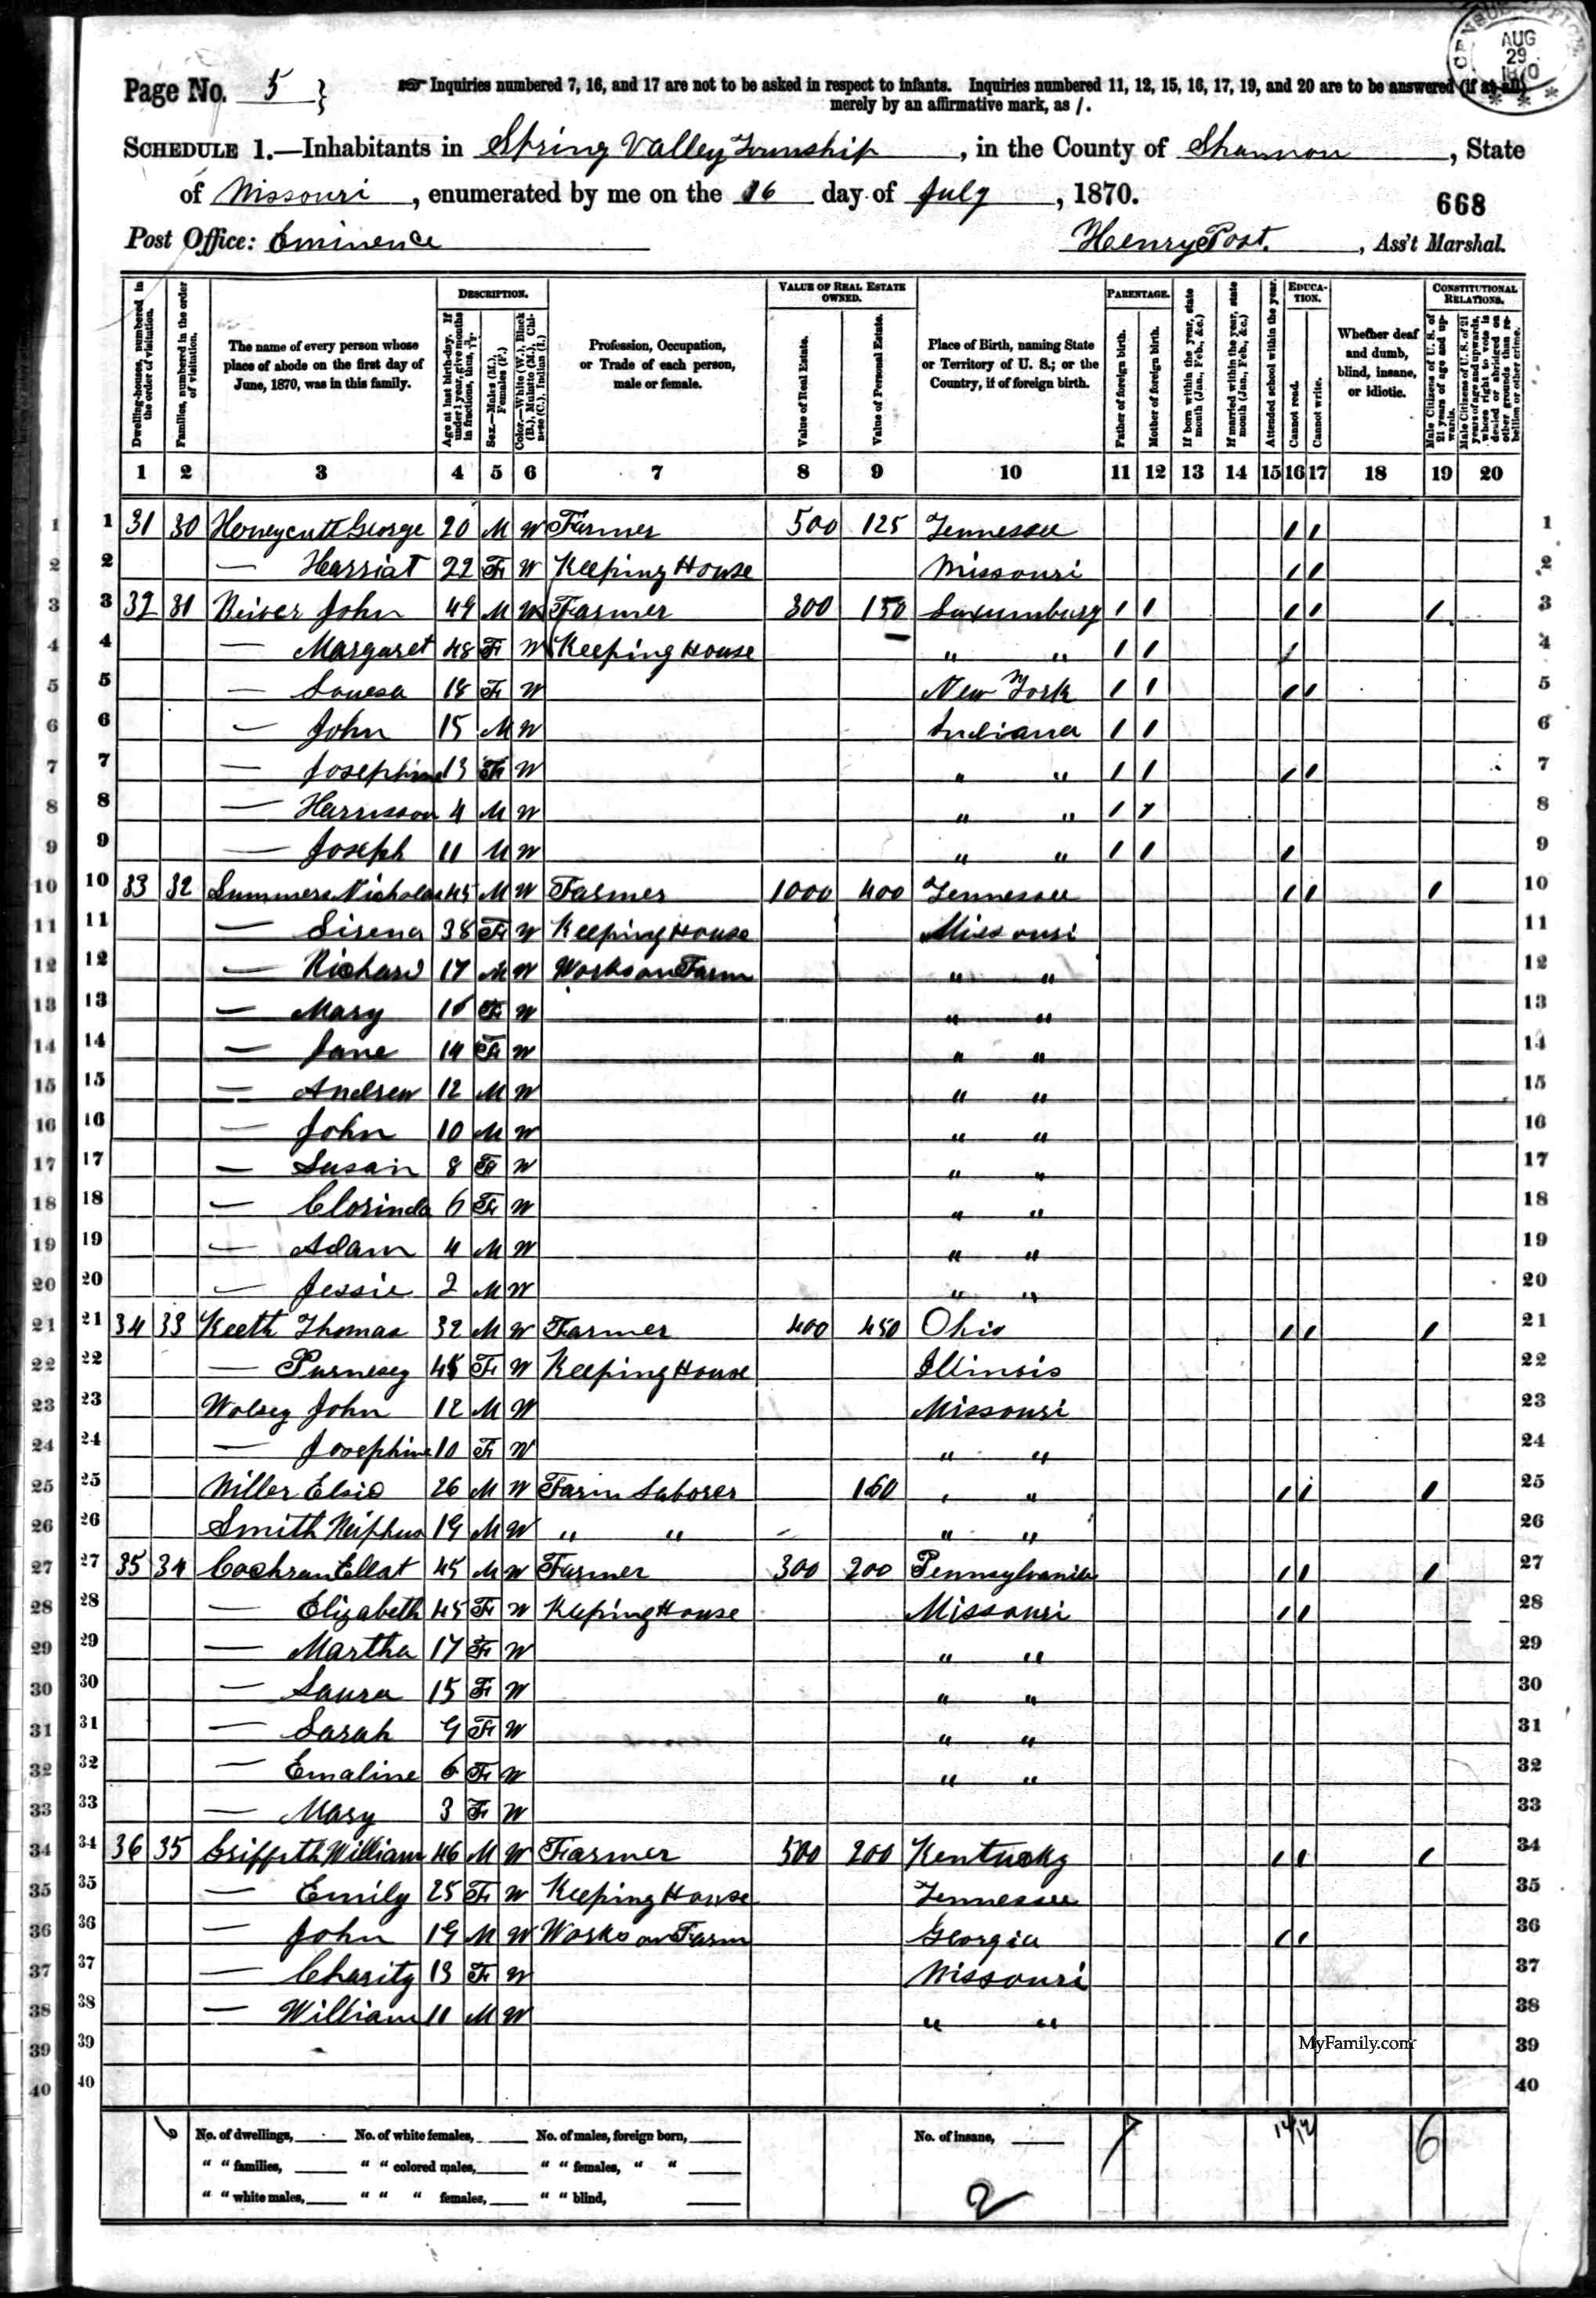 CENSUS OFFICE AUG 29 1870
Page No. 5 } Inquiries numbered 7, 16, and 17 are not to be asked in respect to infants. Inquiries numbered 11, 12, 15, 16, 17, 19, and 20 are to be answered (if at all)
merely by an affirmative mark, as /.
SCHEDULE 1.—Inhabitants in Spring Valley Township, in the County of Shannon, State
of Missouri, enumerated by me on the 16 day of July, 1870.
668
Post Office: Eminence Henry Post, Ass't Marshal.
Dwelling-houses, numbered in the order of visitation.
Families, numbered in the order of visitation.
The name of every person whose place of abode on the first day of June, 1870, was in this family.
DESCRIPTION.
Age at last birth-day. If under 1 year, give months in fractions, thus,
Sex.—Males (M.), Females (F.)
Color.—White (W.), Black (B.), Mulatto (M.), Chinese (C.), Indian (I.)
Profession, Occupation, or Trade of each person, male or female.
VALUE OF REAL ESTATE OWNED.
Value of Real Estate.
Value of Personal Estate.
Place of Birth, naming State or Territory of U. S.; or the Country, if of foreign birth.
PARENTAGE.
Father of foreign birth.
Mother of foreign birth.
If born within the year, state month (Jan., Feb., &c.)
If married within the year, state month (Jan., Feb., &c.)
Attended school within the year.
EDUCATION.
Cannot read.
Cannot write.
Whether deaf and dumb, blind, insane, or idiotic.
CONSTITUTIONAL RELATIONS.
Male Citizens of U. S. of 21 years of age and upwards.
Male Citizens of U. S. of 21 years of age and upwards, whose right to vote is denied or abridged on other grounds than rebellion or other crime.
1 2 3 4 5 6 7 8 9 10 11 12 13 14 15 16 17 18 19 20
1 31 30 Honeycutt George 20 M W Farmer 500 125 Tennessee / / 1
2 — Harriat 22 F W Keeping House Missouri / / 2
3 32 31 John 49 M W Farmer 300 150 Luxumburg / / / / / 3
4 — Margaret 48 F W Keeping House " " / / / 4
5 — Louesa 18 F W New York / / / / 5
6 — John 15 M W Indiana / / 6
7 — Josephine 13 F W " " / / / / 7
8 — Harrisson 4 M W " " / / 8
9 — Joseph 11 M W " " / / / 9
10 33 32 Summers Nicholas 45 M W Farmer 1000 400 Tennessee / / / 10
11 — Sirena 38 F W Keeping House Missouri 11
12 — Richard 17 M W Works on Farm " " 12
13 — Mary F W " " 13
14 — Jane 14 F W " " 14
15 — Andrew 12 M W " " 15
16 — John 10 M W " " 16
17 — Susan 8 F W " " 17
18 — Clorinda 6 F W " " 18
19 — Adam 4 M W " " 19
20 — Jessie 2 M W " " 20
21 34 33 Keeth Thomas 32 M W Farmer 400 450 Ohio / / / 21
22 — F W Keeping House Illinois 22
23 Wolsey John 12 M W Missouri 23
24 — Josephine 10 F W " " 24
25 Miller 26 M W Farm Laborer 160 " " / / / 25
26 Smith 19 M W " " " " 26
27 35 34 Cochran Ellat 45 M W Farmer 300 200 Pennsylvania / / / 27
28 — Elizabeth 45 F W Keeping House Missouri / / 28
29 — Martha 17 F W " " 29
30 — Laura 15 F W " " 30
31 — Sarah 9 F W " " 31
32 — Emaline 6 F W " " 32
33 — Mary 3 F W 33
34 36 35 Griffeth William 46 M W Farmer 500 200 Kentucky / / / 34
35 — Emily 25 F W Keeping House Tennessee 35
36 — John 19 M W Works on Farm Georgia / / 36
37 — Charity 13 F W Missouri 37
38 — William 11 M W " " 38
39 MyFamily.com 39
40 40
6 No. of dwellings, No. of white females, No. of males, foreign born, No. of insane, 7 14 12 6
" " families, " " colored males, " " females, " "
" " white males, " " " females, " " blind, 2